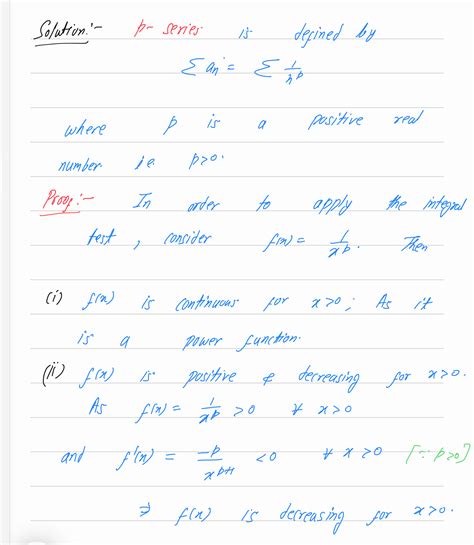 Solution:- p- series is defined by
∑ an = ∑ 1/n^p
where p is a positive real
number i.e. p>0.
Proof:- In order to apply the integral
test, consider f(x) = 1/x^p. Then
(i) f(x) is continuous for x>0; As it
is a power function.
(ii) f(x) is positive & decreasing for x>0.
As f(x) = 1/x^p >0 ∀ x>0
and f'(x) = -p/x^(p+1) <0 ∀ x>0 [∵ p>0]
⇒ f(x) is decreasing for x>0.